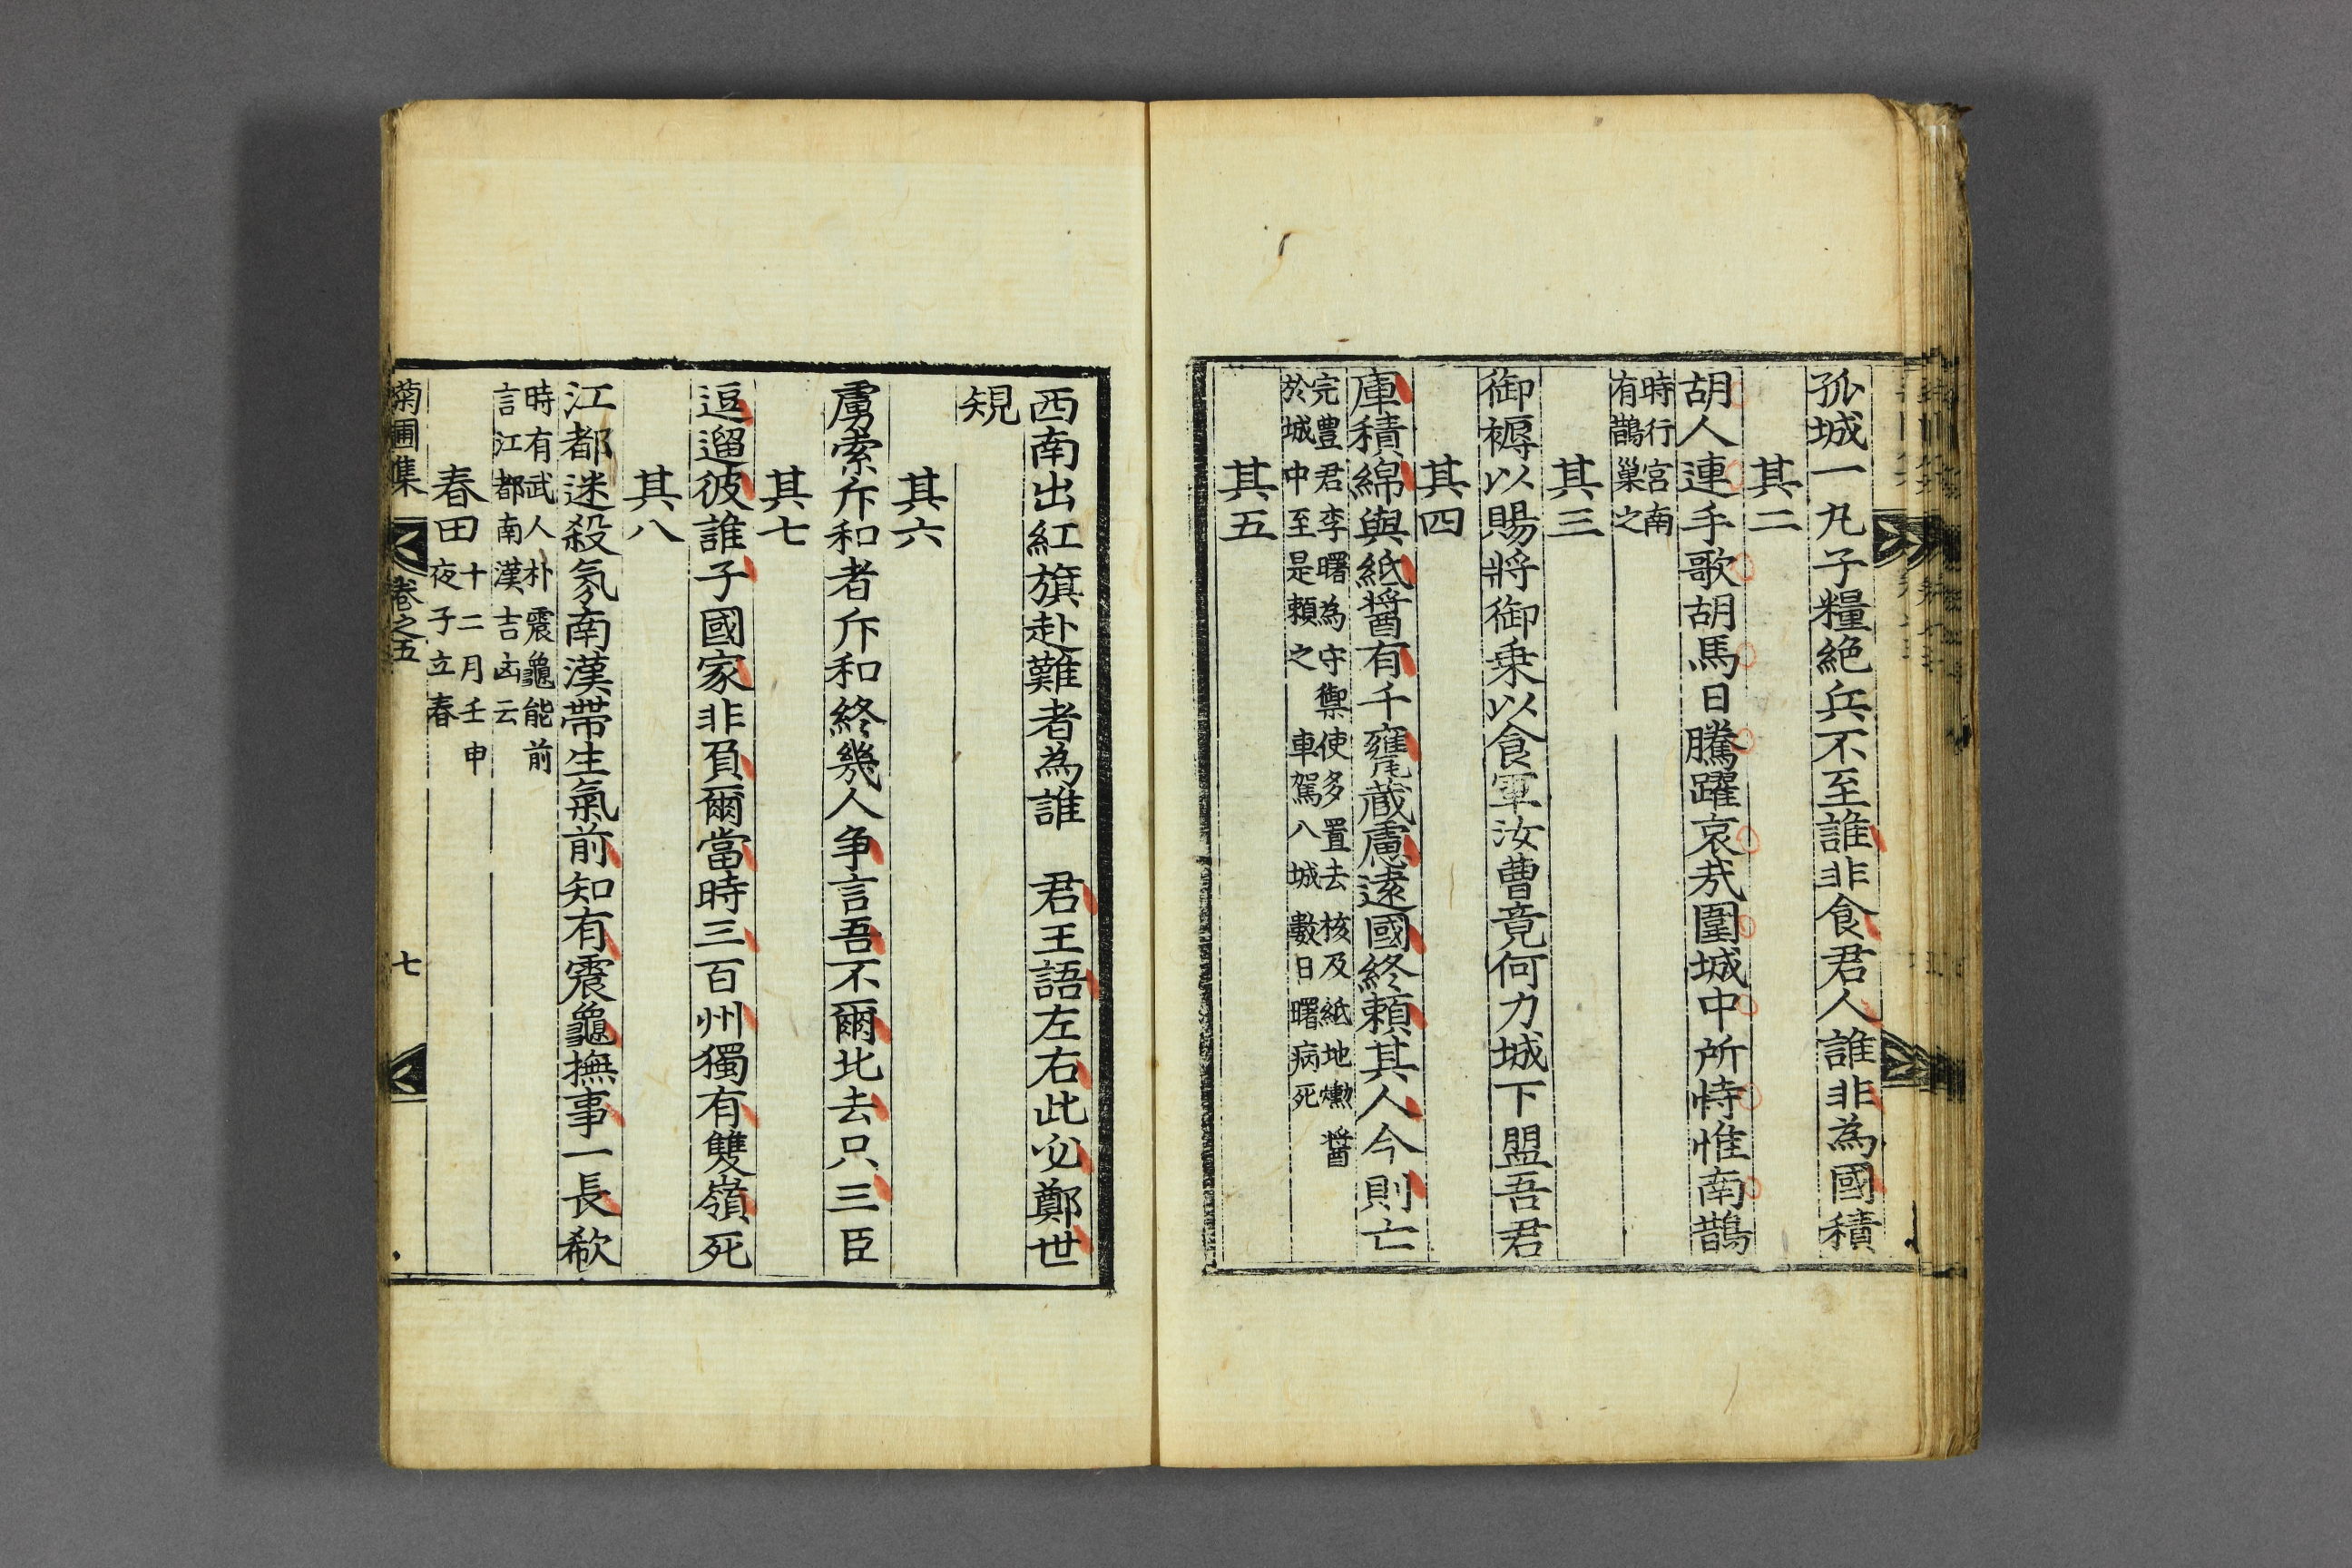 孤城一丸子糧絶兵不至誰非食君人誰非為國積
其二
胡人連手歌胡馬日騰躍哀㦲圍城中所恃惟南鵲
時行宮南
有鵲巢之
其三
御褥以賜將御乗以食軍汝曹竟何力城下盟吾君
其四
庫積綿與紙醬有千甕蔵慮逺國終頼其人今則亡
完豊君李曙為守禦使多置去核及紙地爋醬
於城中至是頼之 車駕入城數日曙病死
其五
西南出紅旗赴難者為誰 君王語左右此必鄭世
規
其六
虜索斥和者斥和終幾人争言吾不爾北去只三臣
其七
逗遛彼誰子國家非負爾當時三百州獨有雙嶺死
其八
江都迷殺氛南漢帶生氣前知有震龜撫事一長欷
時有武人朴震龜能前
言江都南漢吉凶云
春田 十二月壬申
夜子立春
菊圃集 卷之五 七